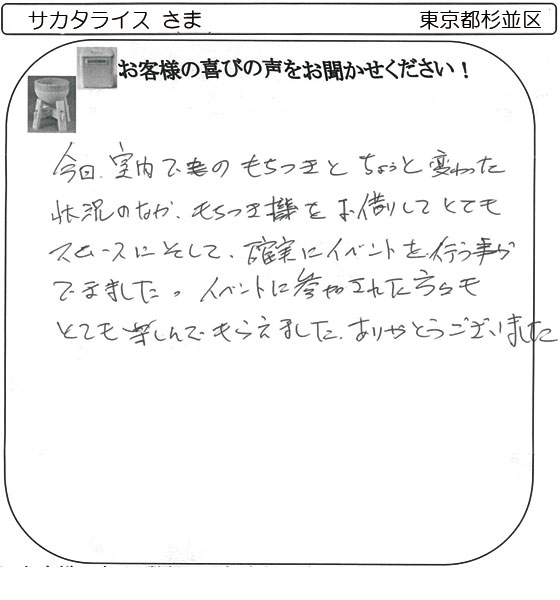 サカタライス さま
東京都杉並区
お客様の喜びの声をお聞かせください！
今回、室内でのもちつきとちょっと変わった
状況のなか、もちつき機をお借りしてとても
スムースにそして、確実にイベントを行う事が
できました。イベントに参加された方々も
とても楽しんでもらえました。ありがとうございました